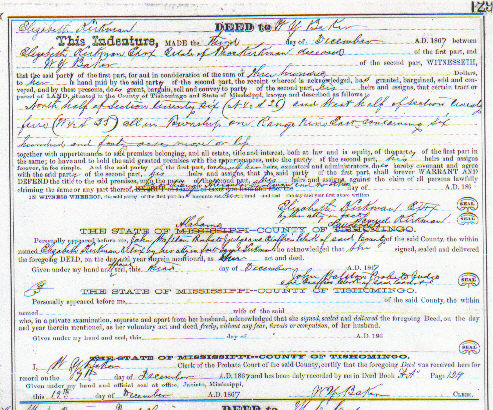 129
Elizabeth Kirkman DEED to W Y Baker
This Indenture, MADE the Third day of December A.D. 1867 between
Elizabeth Kirkman Exox Estate of Thos Kirkman deceased of the first part, and
W Y Baker of the second part, WITNESSETH,
that the said party of the first part, for and in consideration of the sum of Dollars,
to her in hand paid by the said party of the second part, the receipt whereof is acknowledged, has granted, bargained, sold and conveyed, and by these presents, does grant, bargain, sell and convey to party of the second part, his heirs and assigns, that certain tract or
parcel of LAND, situated in the County of Tishomingo and State of Mississippi, known and described as follows:
North half of Section twenty six (N ½ S 26) and West half of section twenty
five (W ½ S 25) all in Township on Range East containing six
hundred and forty acres more or less
together with appurtenances to said premises belonging, and all estate, title and interest, both at law and in equity, of the party of the first part in
the same; to have and to hold the said granted premises with the appurtenances, unto the party of the second part, his heirs and assigns
forever, in fee simple. And the said party of the first part, for heirs, executors and administrators, does hereby covenant and agree
with the said party of the second part, his heirs and assigns, that the said party of the first part, shall forever WARRANT AND
DEFEND the title to the said premises, unto the said party of the second part, his heirs and assigns, against the claim of all persons lawfully
claiming the same or any part thereof, A.D. 186
IN WITNESS WHEREOF, the said party of the first part has hereunto set her hand and seal the day and year first above written
Elizabeth Kirkman Extx SEAL
by her atty in fact
Samuel Kirkman SEAL
Alabama
THE STATE OF MISSISSIPPI--COUNTY OF TISHOMINGO.
Personally appeared before me, John Ralston Probate Judge and Exofficio Clerk of said County of the said County, the within
named Elizabeth Kirkman acknowledged that she signed, sealed and delivered
the foregoing DEED, on the day and year therein mentioned, as her act and deed.
Given under my hand and seal, this day of December A.D. 1867
John Ralston Probate Judge
and Exofficio Clerk of said County SEAL
THE STATE OF MISSISSIPPI--COUNTY OF TISHOMINGO.
Personally appeared before me, of the said County, the within
named wife of the said
who, in a private examination, separate and apart from her husband, acknowledged that she signed, sealed and delivered the foregoing Deed, on the day
and year therein mentioned, as her voluntary act and deed, freely, without any fear, threats or compulsion, of her husband.
Given under my hand and seal, this day of A.D. 186
SEAL
THE STATE OF MISSISSIPPI--COUNTY OF TISHOMINGO.
I, W Y Baker Clerk of the Probate Court of said County, certify that the foregoing Deed was received here for
record on the 9th day of December A.D. 1867 and has been duly recorded by me in Deed Book Page
Given under my hand and official seal at office, Jacinto, Mississippi,
this 12th day of December A.D. 1867 W Y Baker CLERK.
DEED to